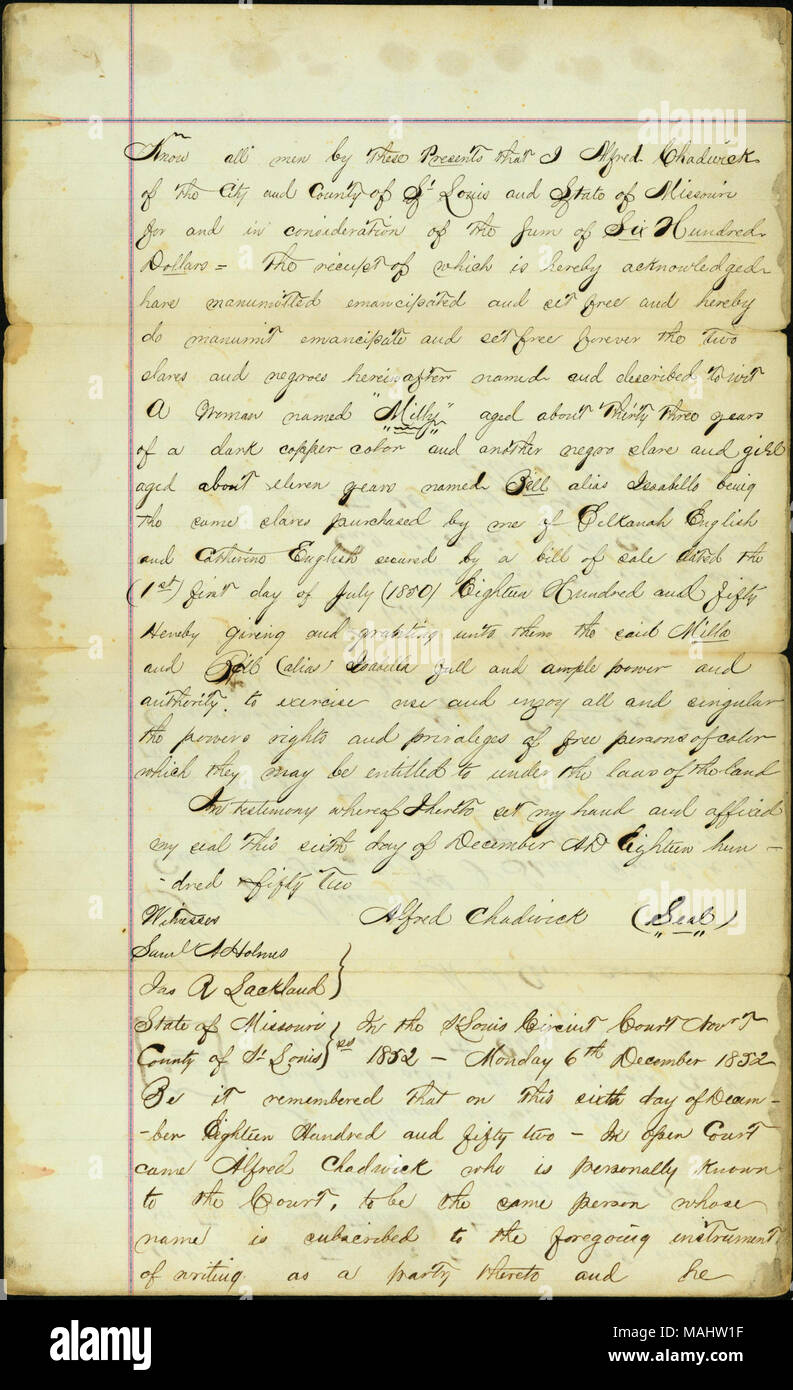 Know all men by these Presents that I Alfred Chadwick
of the City and County of St Louis and State of Missouri
for and in consideration of the sum of Six Hundred
Dollars = the receipt of which is hereby acknowledged
have manumitted emancipated and set free and hereby
do manumit emancipate and set free forever the two
slaves and negroes hereinafter named and described to wit
A Woman named "Milly" aged about Thirty three years
of a dark copper color and another negro slave and girl
aged about eleven years named Bell alias Isabella being
the same slaves purchased by me of Elkanah English
and Catherine English secured by a bill of sale dated the
(1st) first day of July (1850) Eighteen Hundred and fifty
Hereby giving and granting unto them the said Milla
and Bell (alias) Isabella full and ample power and
authority. to exercise use and enjoy all and singular
the powers rights and privileges of free persons of color
which they may be entitled to under the laws of the land
In testimony whereof I hereto set my hand and affixed
my seal this sixth day of December AD Eighteen hun -
- dred & fifty Two
Witnesses Alfred Chadwick (Seal)
Saml A Holmes
Jas R Lackland
State of Missouri } In the St Louis Circuit Court Novr T
County of St Louis } ss 1852 - Monday 6th December 1852
Be it remembered that on this sixth day of Decem-
-ber Eighteen Hundred and fifty two - In open Court
came Alfred Chadwick who is personally known
to the Court, to be the same person whose
name is subscribed to the foregoing instrument
of writing as a party thereto and he
alamy
Image ID: MAHW1F
www.alamy.com